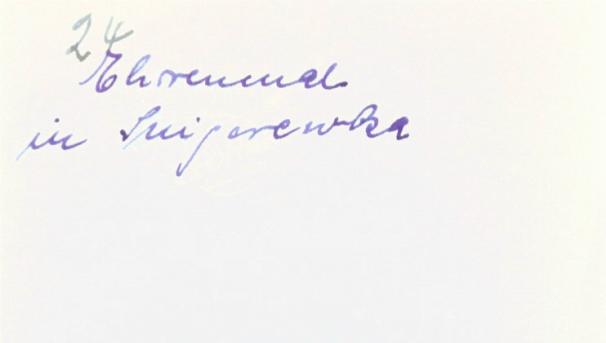 24
Ehrenmal
in Snigorewka